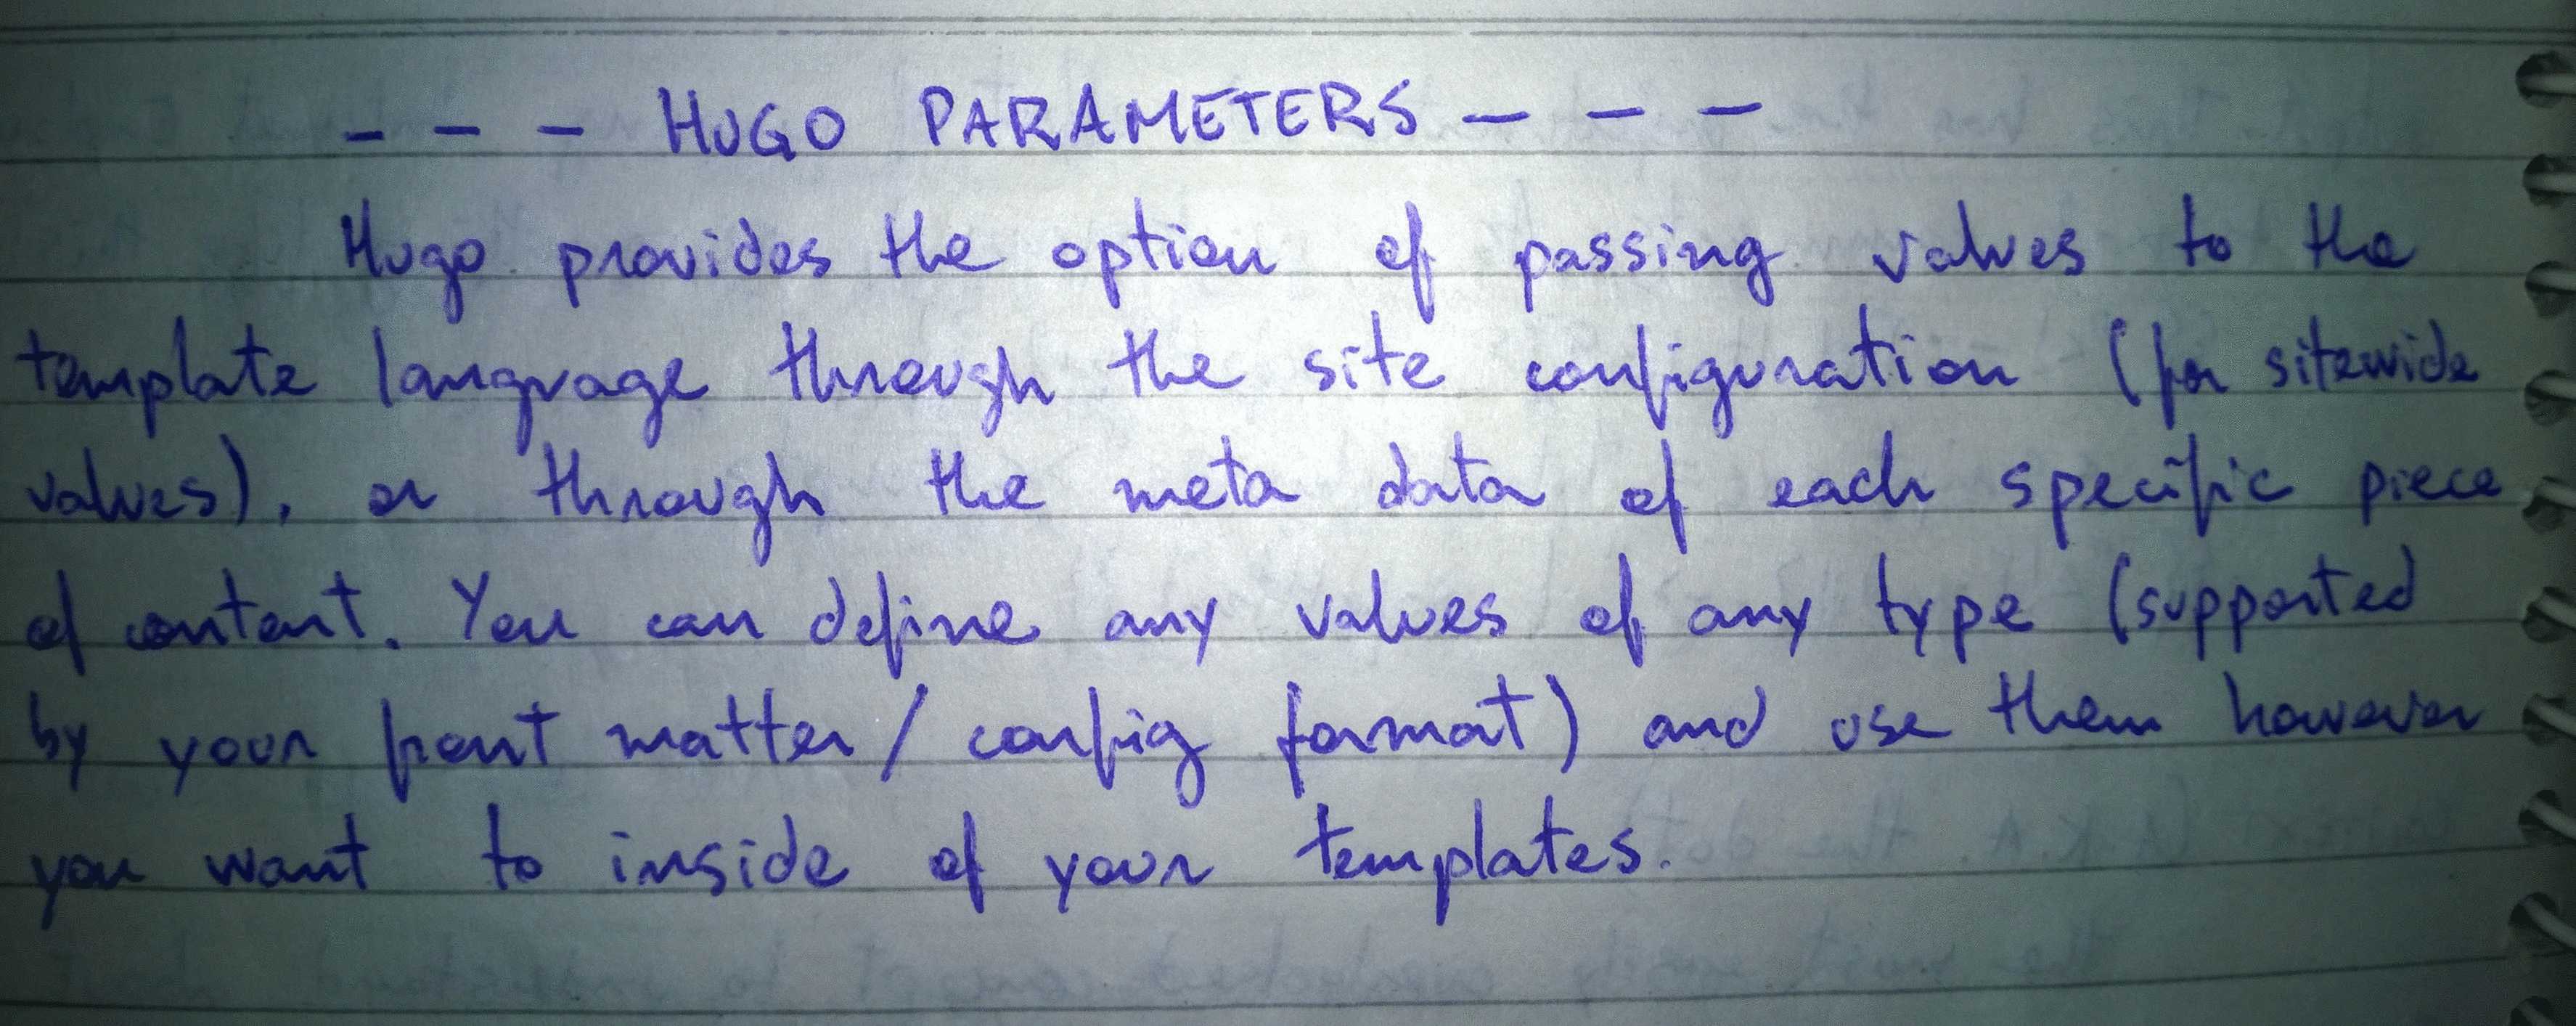 - - - HUGO PARAMETERS - - -
Hugo provides the option of passing values to the
template language through the site configuration (for sitewide
values), or through the meta data of each specific piece
of content. You can define any values of any type (supported
by your front matter/ config format) and use them however
you want to inside of your templates.